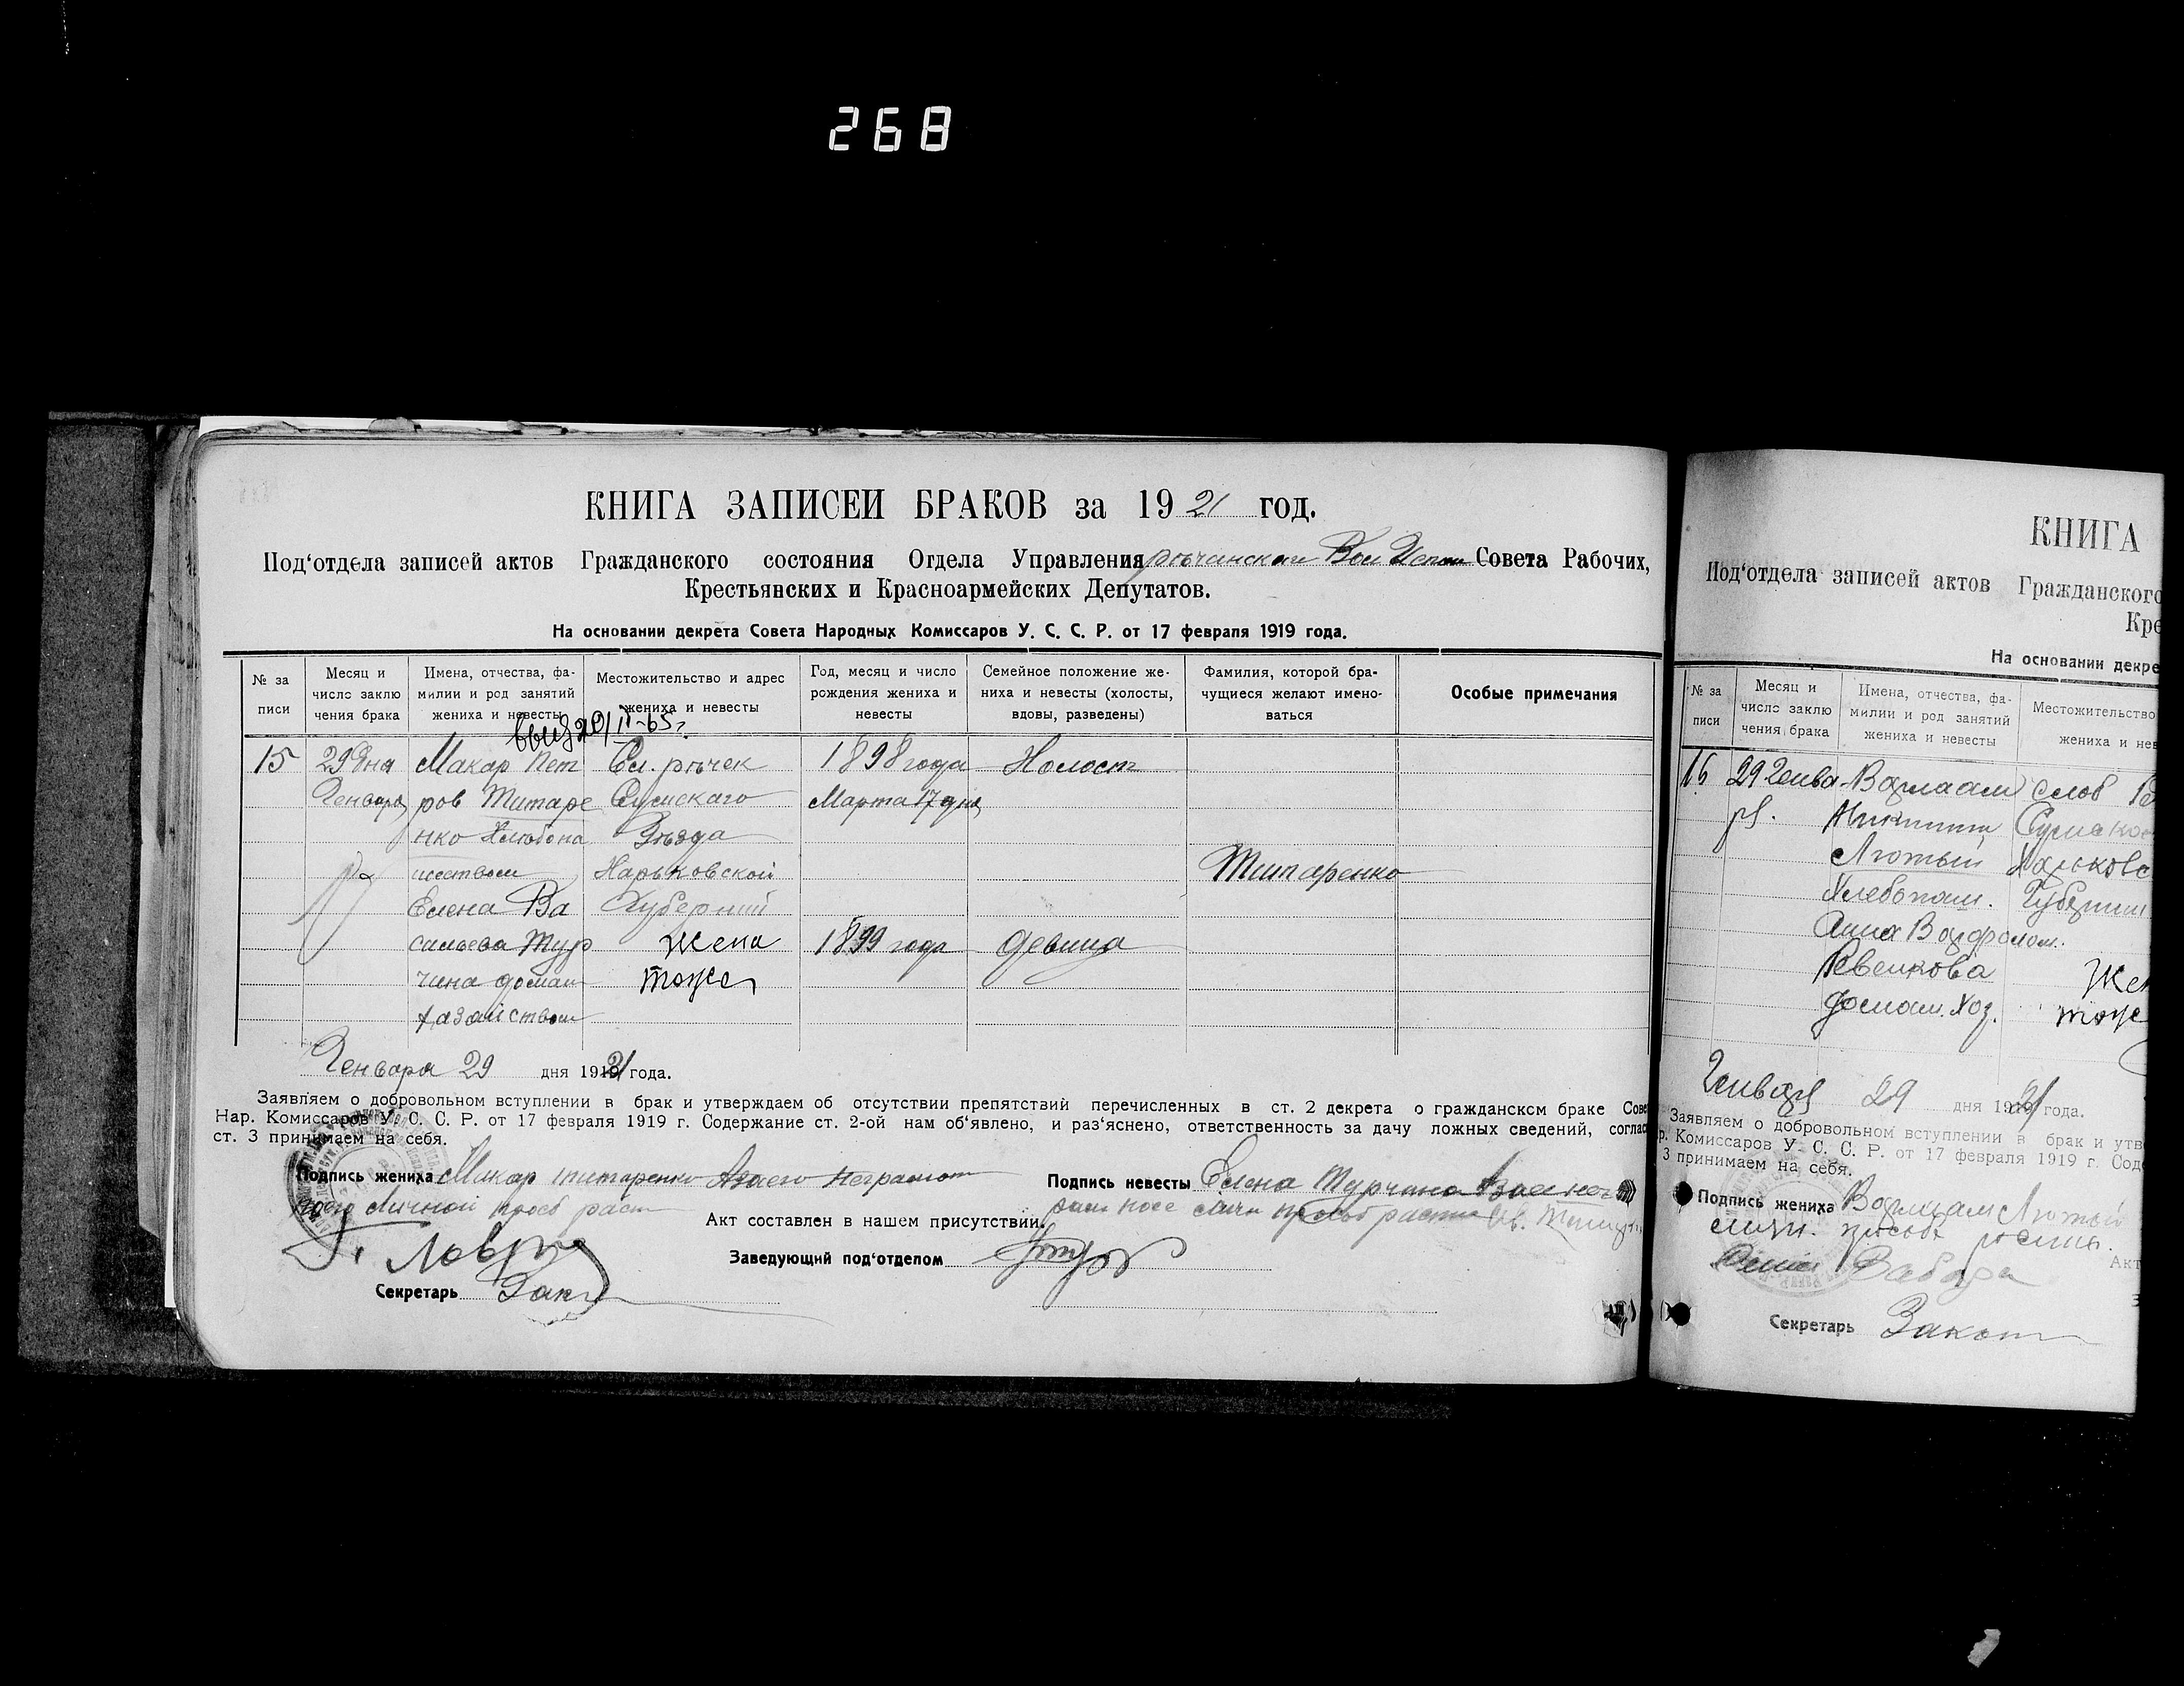 268
КНИГА ЗАПИСЕИ БРАКОВ за 1921 год.
Под‘отдела записей актов Гражданского состояния Отдела Управления Совета Рабочих,
Крестьянских и Красноармейских Депутатов.
На основании декрета Совета Народных Комиссаров У. С. С. Р. от 17 февраля 1919 года.
№ за писи
Месяц и число заклю чения брака
Имена, отчества, фа- милии и род занятий жениха и невесты
Местожительство и адрес жениха и невесты
Год, месяц и число рождения жениха и невесты
Семейное положение же- ниха и невесты (холосты, вдовы, разведены)
Фамилия, которой бра- чущиеся желают имено- ваться
Особые примечания
15 29 дня Макар Пет Сл. рѣчек 1898 года Холост
Генваря ров Титаре Сумскаго Марта 17 дня
нко Хлебопа Уѣзда
шеством Харьковской Титаренко
Елена Ва Губерний
сильева Тур Жена 1899 года девица
чина домаш тоже
хазайством
Генваря 29 дня 1921 года.
Заявляем о добровольном вступлении в брак и утверждаем об отсутствии препятствий перечисленных в ст. 2 декрета о гражданском браке Сове
Нар. Комиссаров У. С. С. Р. от 17 февраля 1919 г. Содержание ст. 2-ой нам об‘явлено, и раз‘яснено, ответственность за дачу ложных сведений, соглас
ст. 3 принимаем на себя.
Подпись жениха Макар титаренко Азаего неграмот
ного личной прозб расп
Подпись невесты Елена Турчина
Акт составлен в нашем присутствии.
Заведующий под‘отделом
Секретарь
КНИГА
Под‘отдела записей актов Гражданского
Кре
На основании декре
№ за писи
Месяц и число заклю чения брака
Имена, отчества, фа- милии и род занятий жениха и невесты
Местожительство жениха и нев
16 29 Генва Варлаам слоб
ря. Никитин Сумско
Лютый Харьковс
Хлебопаш. Губерни
Анна Варфолом.
Ревенкова Жен
домаш. Хоз. тоже
Генваря 29 дня 1921 года.
Заявляем о добровольном вступлении в брак и утв
р. Комиссаров У. С. С. Р. от 17 февраля 1919 г. Сод
3 принимаем на себя.
Подпись жениха Варлаам Лютый
Акт
Секретарь